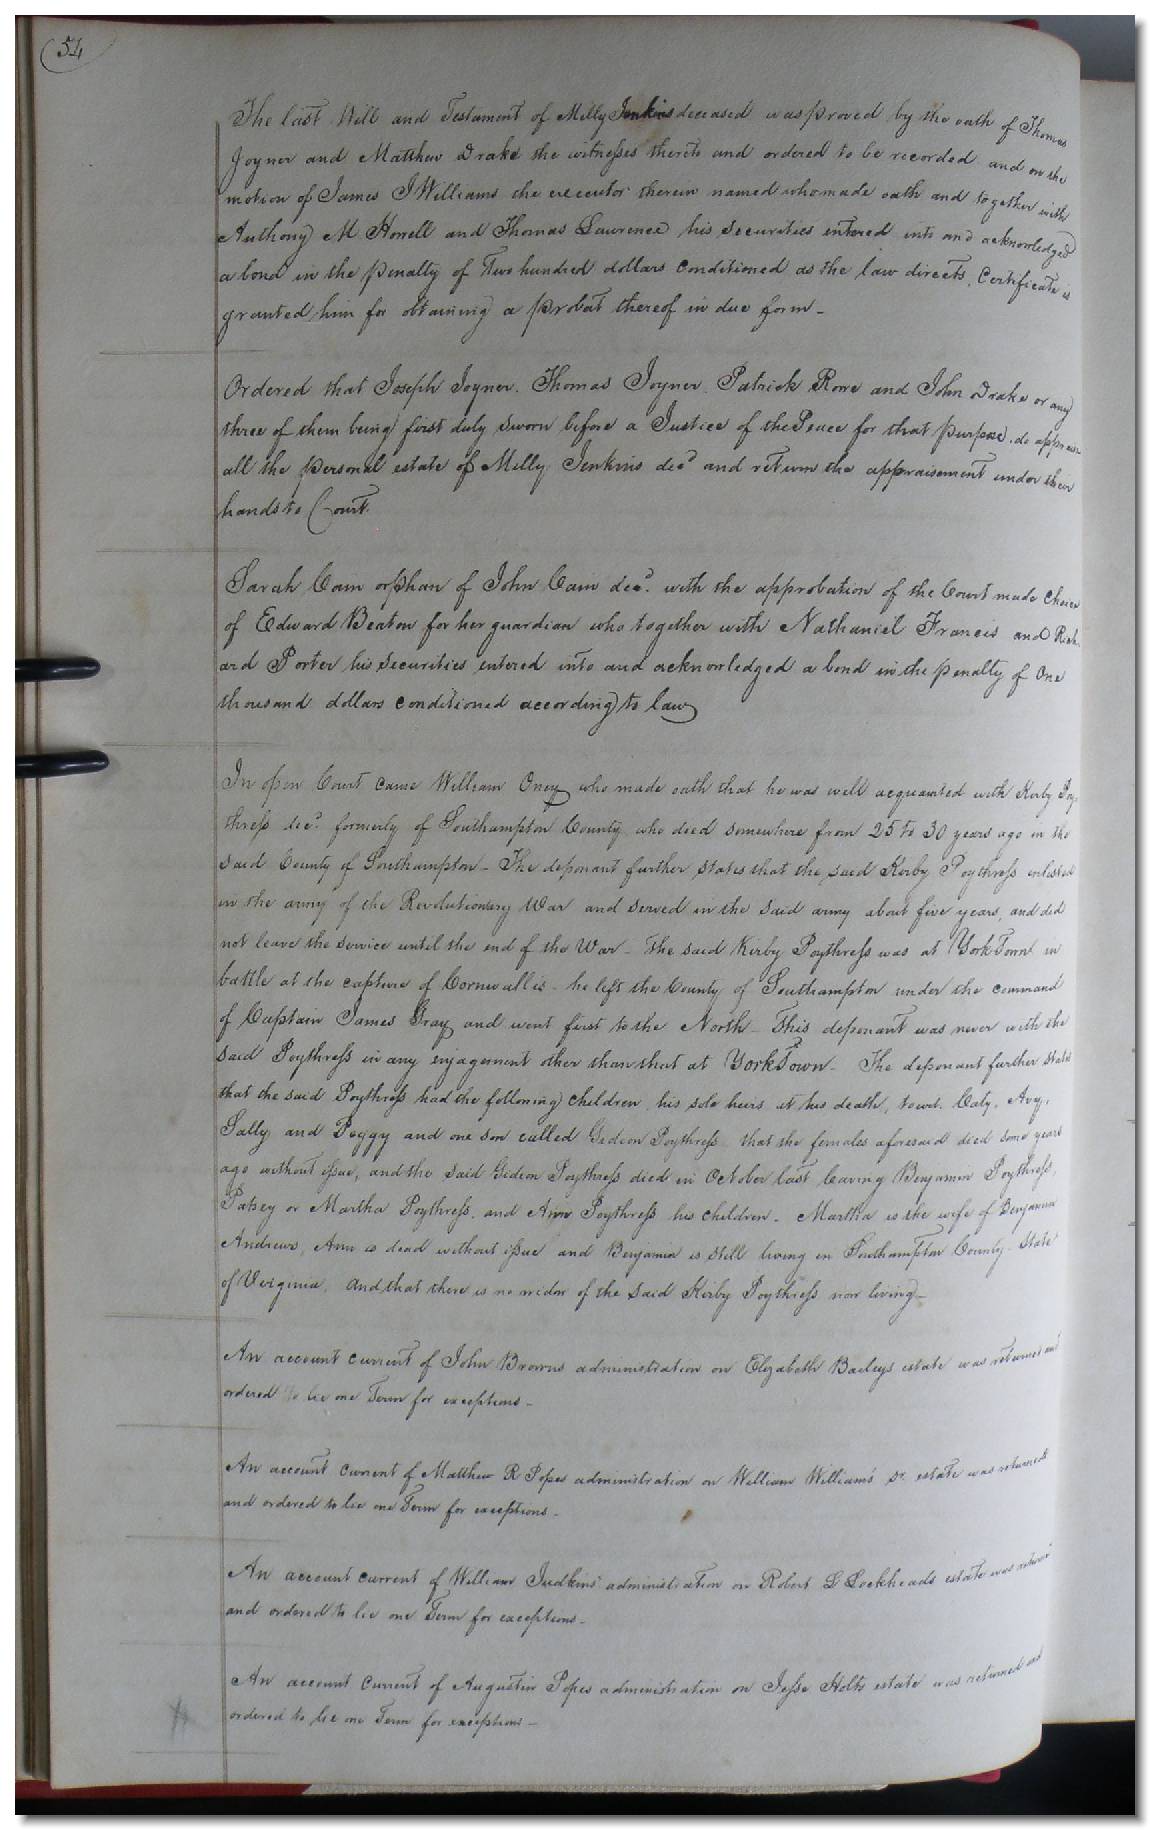 54
The last Will and Testament of Milly Jenkins deceased was proved by the oath of Thomas
Joyner and Matthew Drake the witnesses thereto and ordered to be recorded and on the
motion of James J Williams the executor therein named who made oath and together with
Anthony M Howell and Thomas Lawrence his securities entered into and acknowledged
a bond in the penalty of Two hundred dollars conditioned as the law directs, Certificate is
granted him for obtaining a probat thereof in due form -
Ordered that Joseph Joyner. Thomas Joyner. Patrick Rowe and John Drake or any
three of them being first duly sworn before a Justice of the Peace for that purpose, do appraise
all the personal estate of Milly Jenkins decd and return the appraisement under their
hands to Court.
Sarah Cain orphan of John Cain decd. with the approbation of the Court made choice
of Edward Beaton for her guardian who together with Nathaniel Francis and Rich-
ard Porter his securities entered into and acknowledged a bond in the penalty of One
thousand dollars conditioned according to law
In open Court came William Oney who made oath that he was well acquainted with Kirby Poy-
thress decd. formerly of Southampton County, who died somewhere from 25 to 30 years ago in the
said County of Southampton - The deponant further states that the said Kirby Poythress enlisted
in the army of the Revolutionary War and served in the said army about five years, and did
not leave the service until the end of the War - The said Kirby Poythress was at York Town in
battle at the capture of Cornwallis - he left the County of Southampton under the command
of Captain James Gray and went first to the North - This deponant was never with the
said Poythress in any enjagement other than that at York Town - The deponant further states
that the said Poythress had the following children, his sole heirs at his death, towit. Caty, Avy,
Sally and Peggy and one son called Gedeon Poythress that the females aforesaid died some years
ago without issue, and the said Gideon Poythress died in October last leaving Benjamin Poythress,
Patsey or Martha Poythress, and Ann Poythress his children - Martha is the wife of Benjamin
Andrews, Ann is dead without issue and Benjamin is still living in Southampton County - State
of Virginia, and that there is no widow of the said Kirby Poythress now living -
An account current of John Browns administration on Elizabeth Baileys estate was returned and
ordered to lie one Term for exceptions -
An account current of Matthew R Popes administration on William William's Sr. estate was returned
and ordered to lie one Term for exceptions -
An account current of William Judkins' administration on Robert L Lockheads estate was returned
and ordered to lie one Term for exceptions -
An account current of Augustin Popes administration on Jesse Holts estate was returned and
ordered to lie one Term for exceptions -